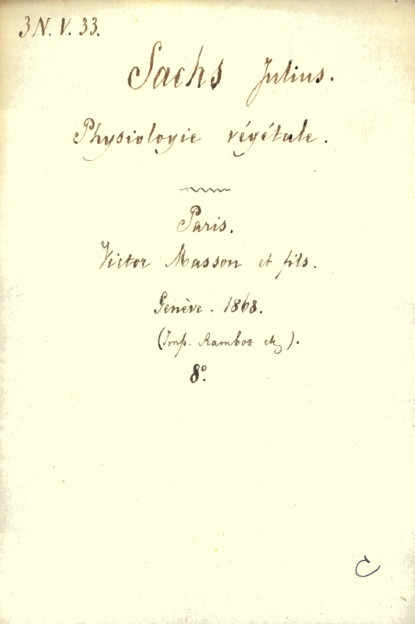 3N. V. 33.
Sachs Julius.
Physiologie végétale.
Paris.
Victor Masson et fils.
Genève. 1868.
(Imp. Ramboz etc).
8°.
C